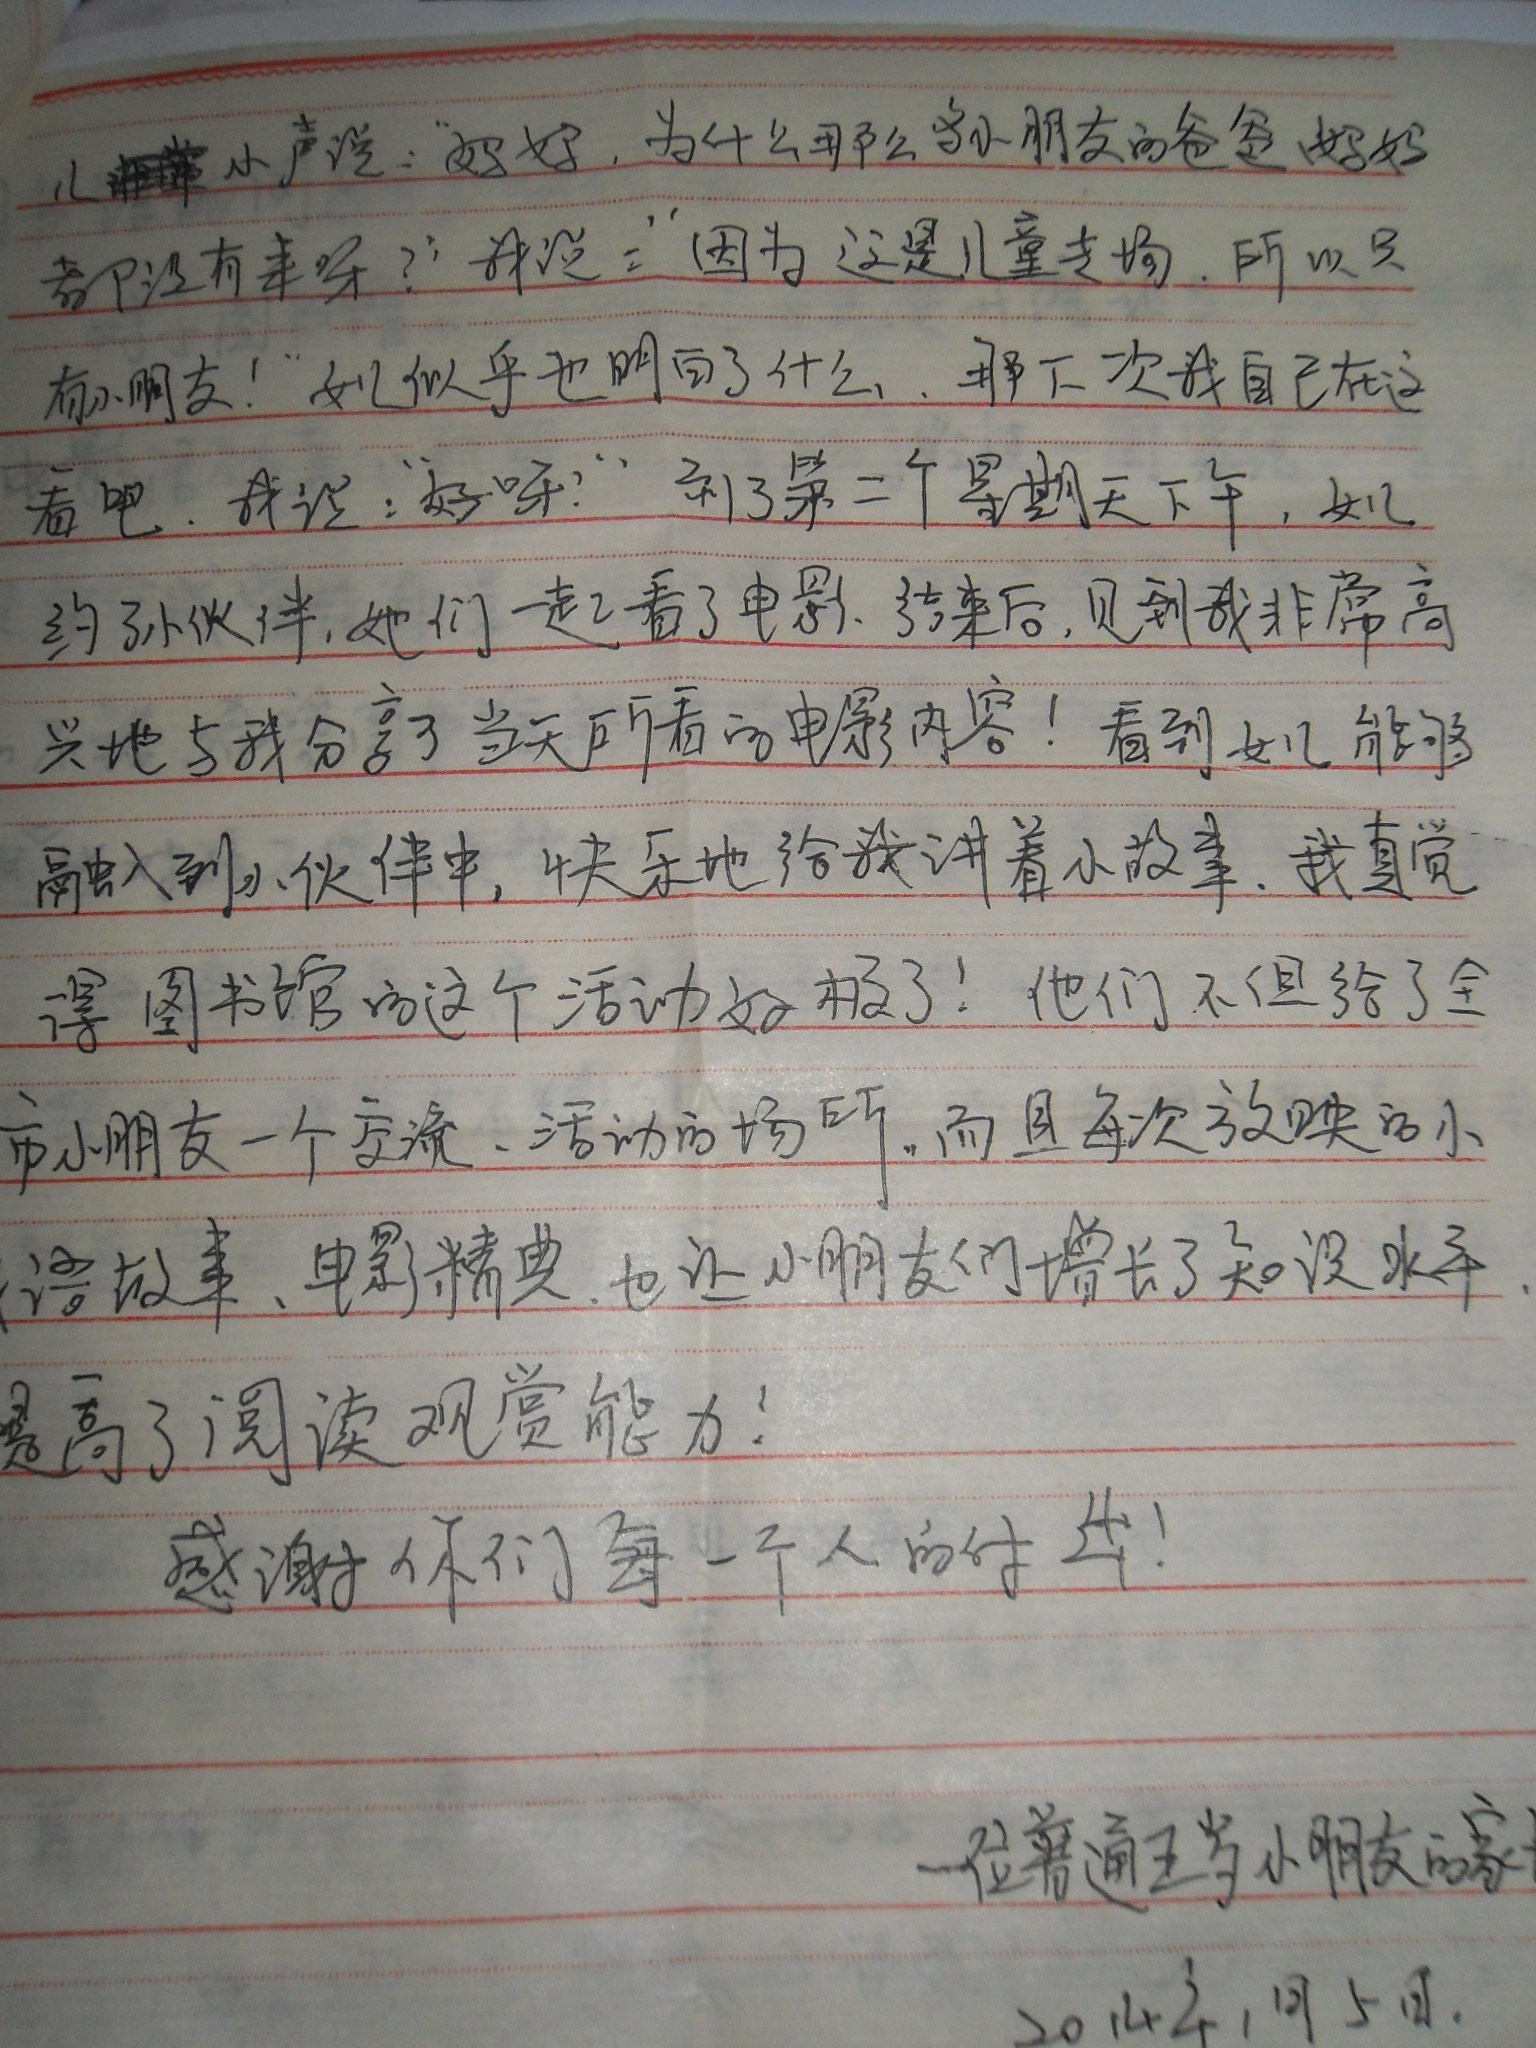 儿小声说："妈妈，为什么那么多小朋友的爸爸妈妈
都没有来呀？"我说："因为这是儿童专场.所以只
有小朋友！"女儿似乎也明白了什么、.那下次我自己在这
看吧.我说："好呀！"到了第二个星期天下午，女儿
约了小伙伴,她们一起看了电影、结束后,见到我非常高
兴地与我分享了当天所看的电影内容！看到女儿能够
融入到小伙伴中,快乐地给我讲着小故事.我真觉
得图书馆的这个活动好极了！他们不但给了全
市小朋友一个交流、活动的场所。而且每次放映的小
故事、电影精典.也让小朋友们增长了知识水平.
提高了阅读观赏能力！
感谢你们每一个人的付出！
一位普通五岁小朋友的家长
2014年1月5日.